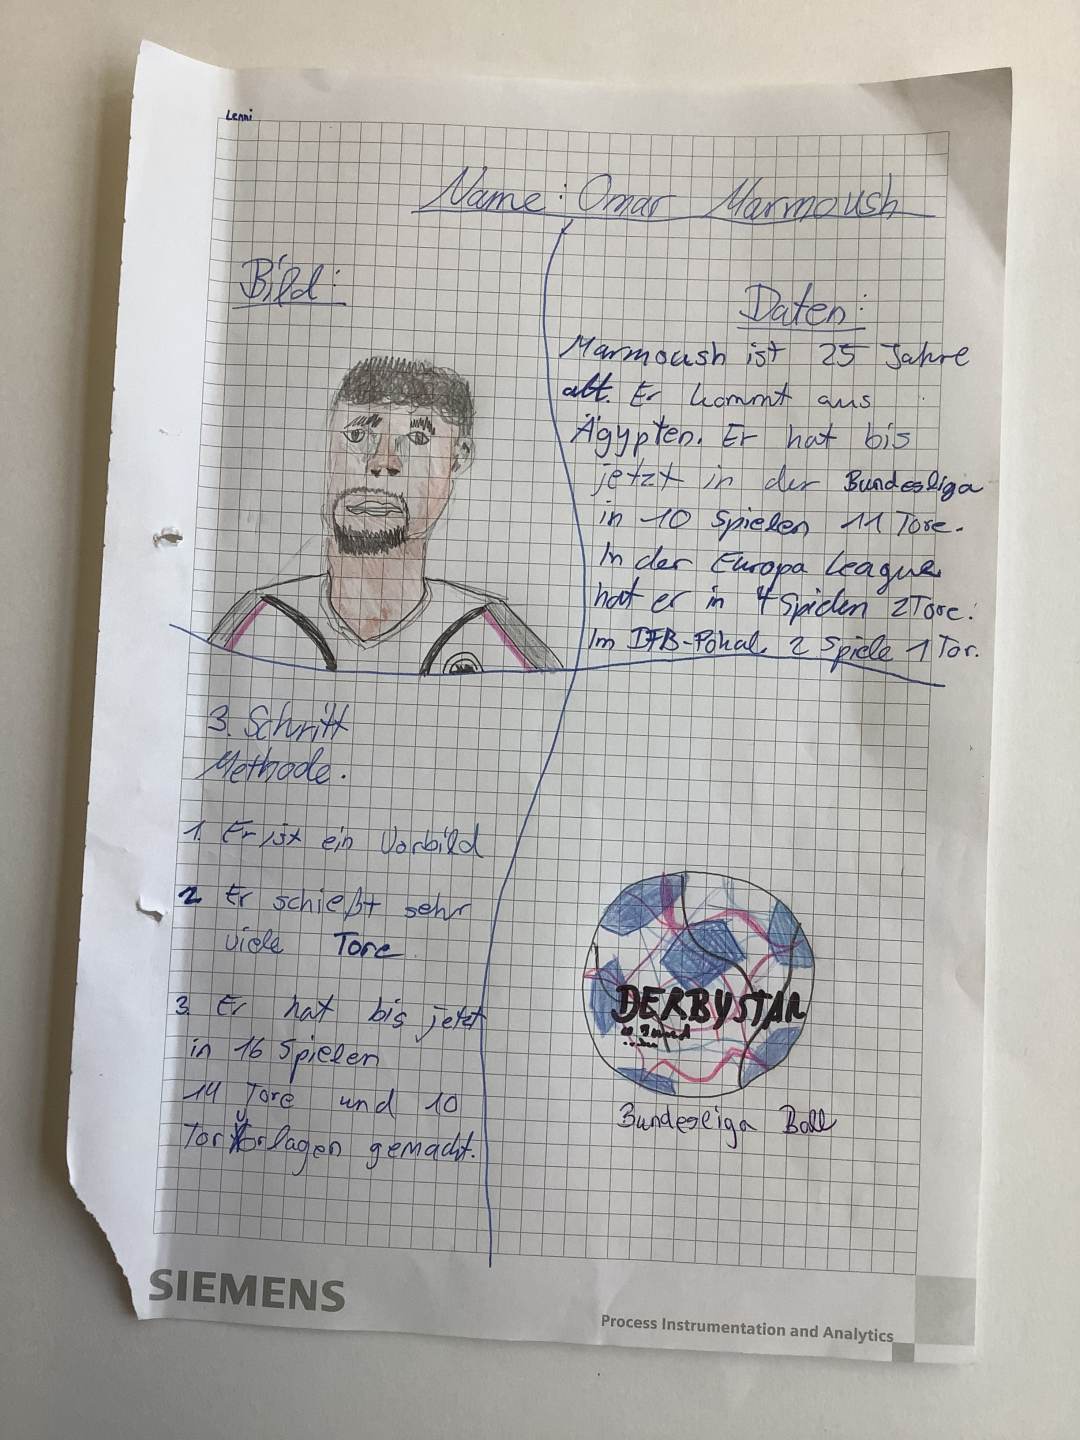 Lenni
Name: Omar Marmoush
Bild:
Daten:
Marmoush ist 25 Jahre
alt. Er kommt aus
Ägypten. Er hat bis
jetzt in der Bundesliga
in 10 Spielen 11 Tore.
In der Europa League
hat er in 4 Spielen 2 Tore.
Im DFB-Pokal 2 Spiele 1 Tor.
3. Schritt
Methode.
1. Er ist ein Vorbild
2 Er schießt sehr
viele Tore
3. Er hat bis jetzt
in 16 Spielen
14 Tore und 10
Torvorlagen gemacht.
DERBYSTAR
Bundesliga Ball
SIEMENS
Process Instrumentation and Analytics